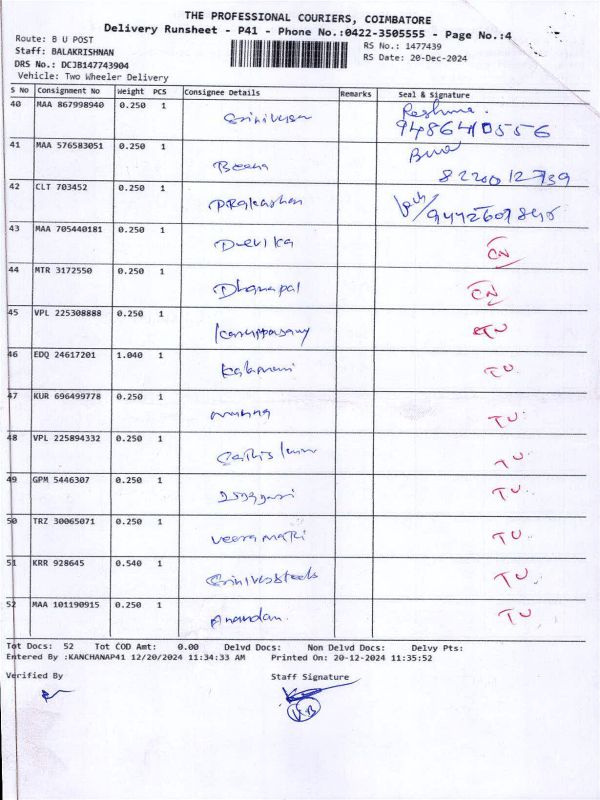 THE PROFESSIONAL COURIERS, COIMBATORE
Delivery Runsheet - P41 - Phone No.:0422-3505555 - Page No.:4
Route: B U POST
RS No.: 1477439
Staff: BALAKRISHNAN
RS Date: 20-Dec-2024
DRS No.: DCJB147743904
Vehicle: Two Wheeler Delivery
S No Consignment No Weight PCS Consignee Details Remarks Seal & Signature
40 MAA 867998940 0.250 1 Srinivasan Reshma.
9486410556
41 MAA 576583051 0.250 1 Beena
42 CLT 703452 0.250 1 Prakashan
43 MAA 705440181 0.250 1 Devika CN
44 MTR 3172550 0.250 1 Dhanapal CN
45 VPL 225308888 0.250 1 Karuppasamy TU
46 EDQ 24617201 1.040 1 TU
47 KUR 696499778 0.250 1 TU
48 VPL 225894332 0.250 1 TU
49 GPM 5446307 0.250 1 TU
50 TRZ 30065071 0.250 1 Veeramani TU
51 KRR 928645 0.540 1 TU
52 MAA 101190915 0.250 1 Anandan. TU
Tot Docs: 52 Tot COD Amt: 0.00 Delvd Docs: Non Delvd Docs: Delvy Pts:
Entered By :KANCHANAP41 12/20/2024 11:34:33 AM Printed On: 20-12-2024 11:35:52
Verified By Staff Signature